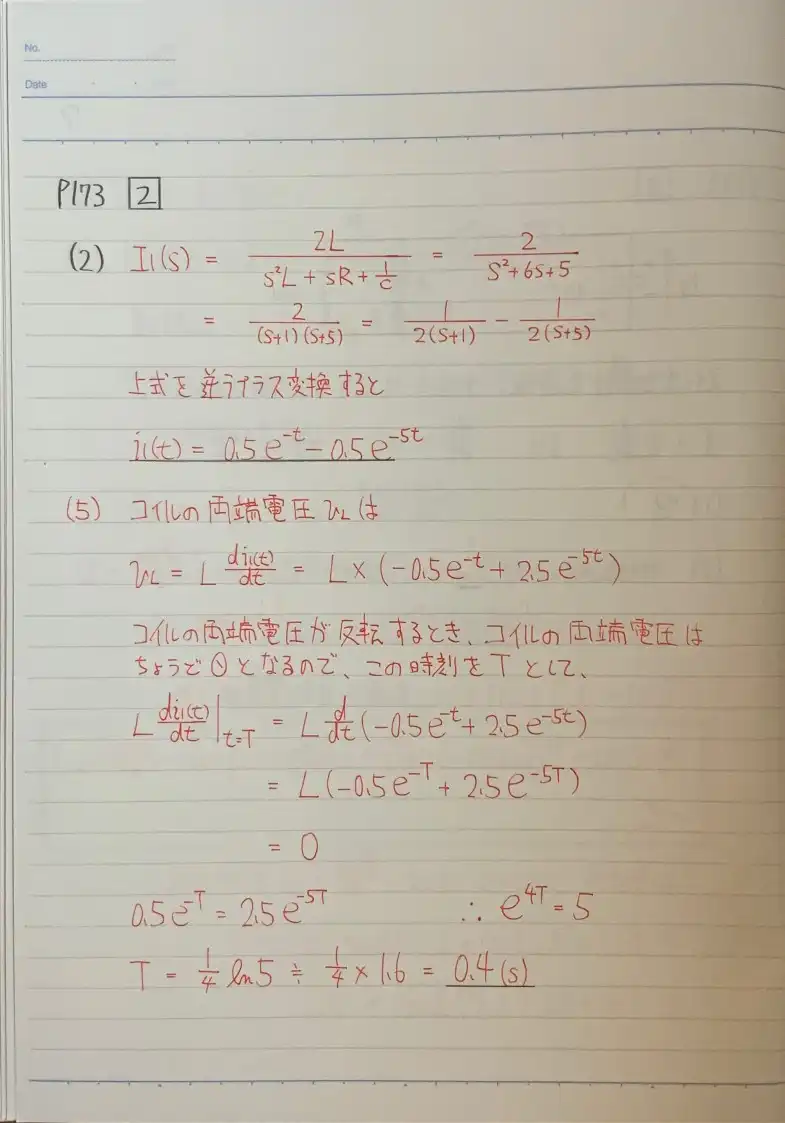 No.
Date
P173 2
(2) I1(s) = 2L / (s²L + sR + 1/C) = 2 / (s²+6s+5)
= 2 / ((s+1)(s+5)) = 1 / (2(s+1)) − 1 / (2(s+5))
上式を逆ラプラス変換すると
i1(t) = 0.5e^{-t} − 0.5e^{-5t}
(5) コイルの両端電圧 vL は
vL = L di1(t)/dt = L × (−0.5e^{-t} + 2.5e^{-5t})
コイルの両端電圧が反転するとき、コイルの両端電圧は
ちょうど0となるので、この時刻をTとして、
L di1(t)/dt |t=T = L d/dt (−0.5e^{-t} + 2.5e^{-5t})
= L(−0.5e^{-T} + 2.5e^{-5T})
= 0
0.5e^{-T} = 2.5e^{-5T} ∴ e^{4T} = 5
T = 1/4 ln5 ≒ 1/4 × 1.6 = 0.4(s)